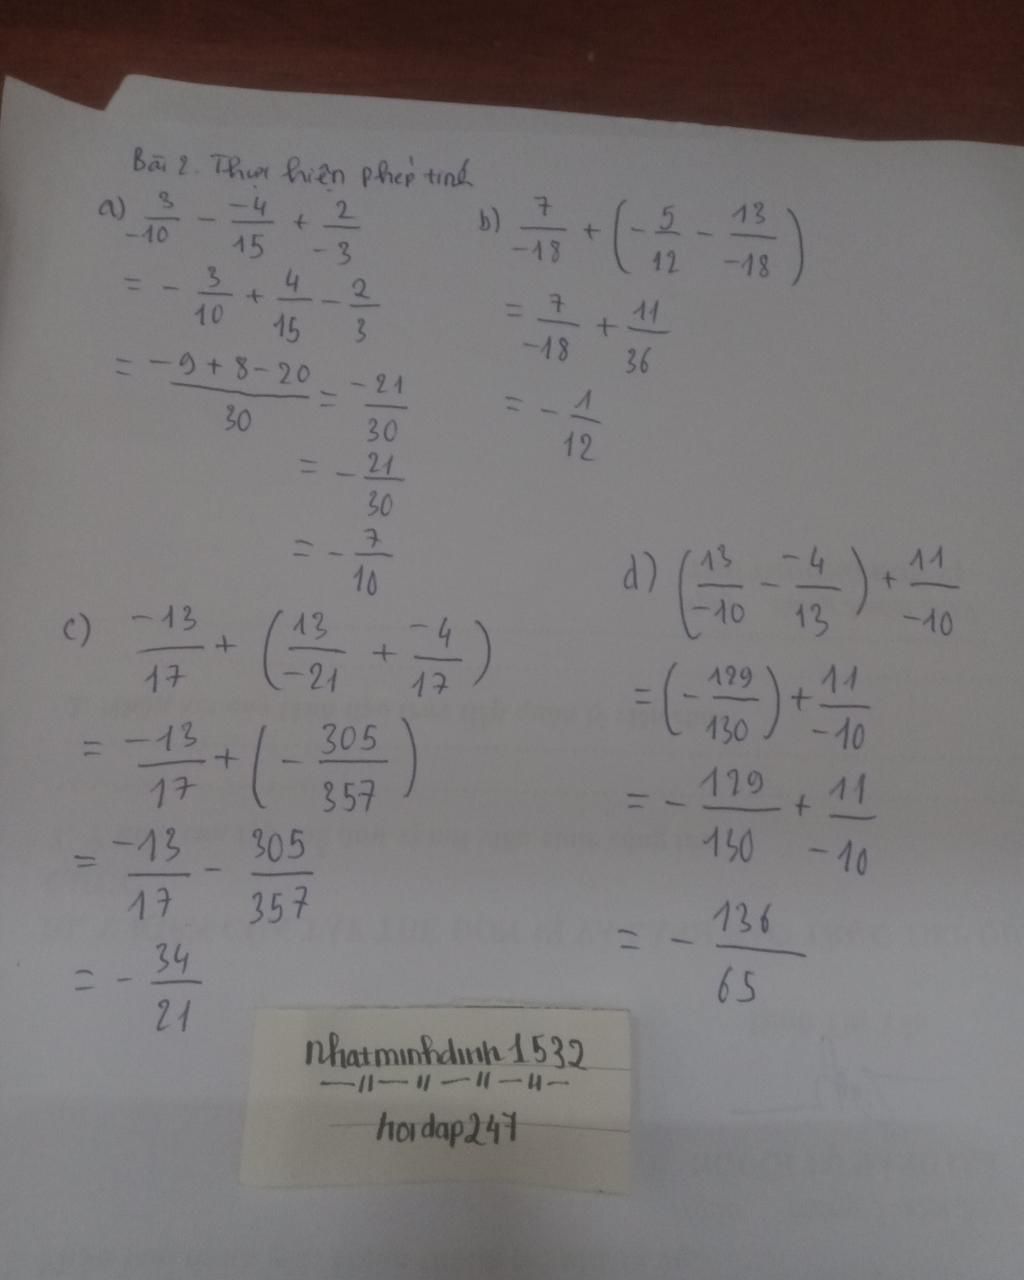 Bài 2. Thực hiện phép tính
a) 3/-10 - -4/15 + 2/-3
= - 3/10 + 4/15 - 2/3
= -9+8-20/30 = -21/30
= - 21/30
= - 7/10
b) 7/-18 + (- 5/12 - 13/-18)
= 7/-18 + 11/36
= - 1/12
c) -13/17 + (13/-21 + -4/17)
= -13/17 + (- 305/357)
= -13/17 - 305/357
= - 34/21
d) (13/-10 - -4/13) + 11/-10
= (- 129/130) + 11/-10
= - 129/130 + 11/-10
= - 136/65
nhatminhdinh1532
hoidap247